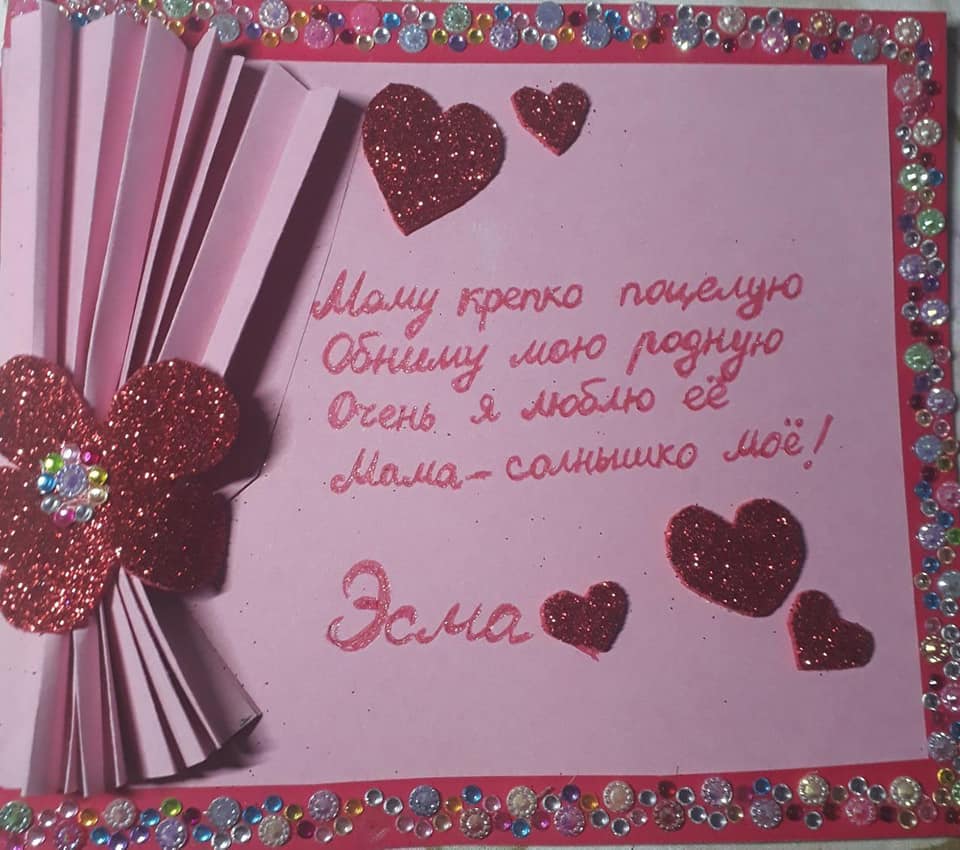 Маму крепко поцелую
Обниму мою родную
Очень я люблю её
Мама - солнышко моё!
Эсма